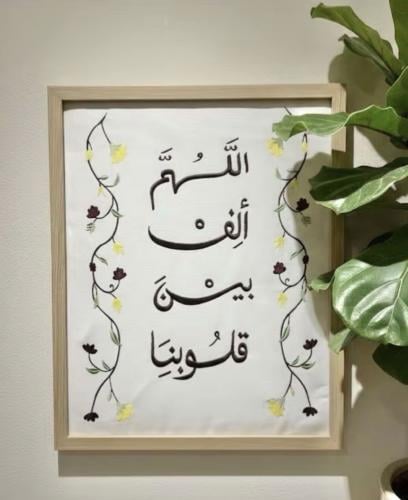 اللَّهُمَّ
ألِفْ
بينْنَ
قلُوبنِا